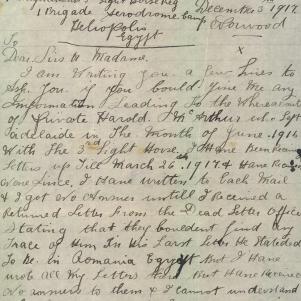 1 Brigade Aerodrome Camp
December 3rd 1917
Heliopolis
Norwood
Egypt
To
Dear Sirs or Madame.
I am Writing you a few lines to
Ask you if you could give Me any
Information Leading to the Whereabouts
of Private Harold. McArthur who left
Adelaide in The Month of June. 1916
With The 3rd Light Horse. I Have Been
Letters up Till March 26th 1917 & Have
None Since, I Have written to Each Mail
& I got No Answer untill I Received a
Returned Letter From the Dead Letter Office
Stating that they couldent find any
Trace of Him In His Last Letter He Stateded
To Be in Romania Egypt But I Have
wrote All My Letters But Have Received
No answers to them & I cannot understand